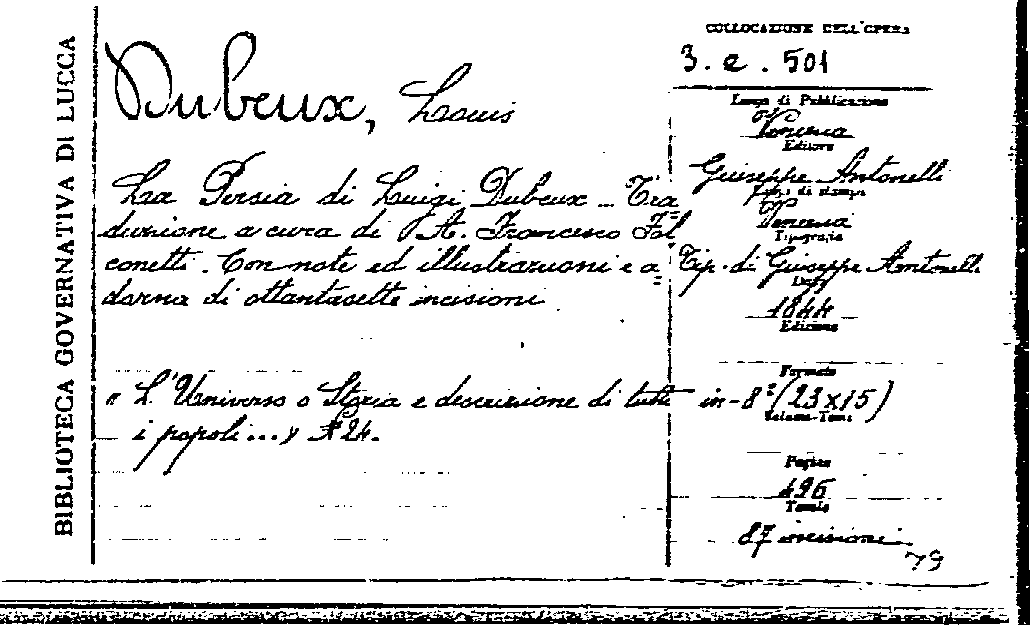 BIBLIOTECA GOVERNATIVA DI LUCCA
Dubeux, Louis
La Persia di Luigi Dubeux - Tra=
duzione a cura di A. Francesco Fal
conetti. Con note ed illustrazioni e a=
dorna di ottantasette incisioni
« L'Universo o Storia e descrizione di tutti
i popoli...» N° 24.
COLLOCAZIONE DELL'OPERA
3. e. 501
Luogo di Pubblicazione
Venezia
Editore
Giuseppe Antonelli
Luogo di stampa
Venezia
Tipografia
Tip. di Giuseppe Antonelli
Data
1844
Edizione
Formato
in-8° (23x15)
Volume-Tomi
Pagine
496
Tavole
87 incisioni
79